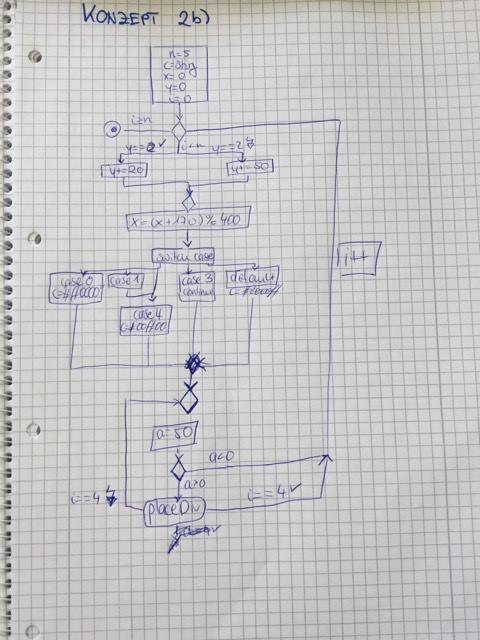 KONZEPT 2b)
n=5
x=0
y=0
i=0
i≥n
i<n
y==2
y+=20
y+=50
x=(x+170)%400
switch case
case 0
c=#ff0000
case 1
case 3
continue
default
case 4
c=#00ff00
i++
a=50
a<0
a>0
i==4
placeDiv
i==4 ✓